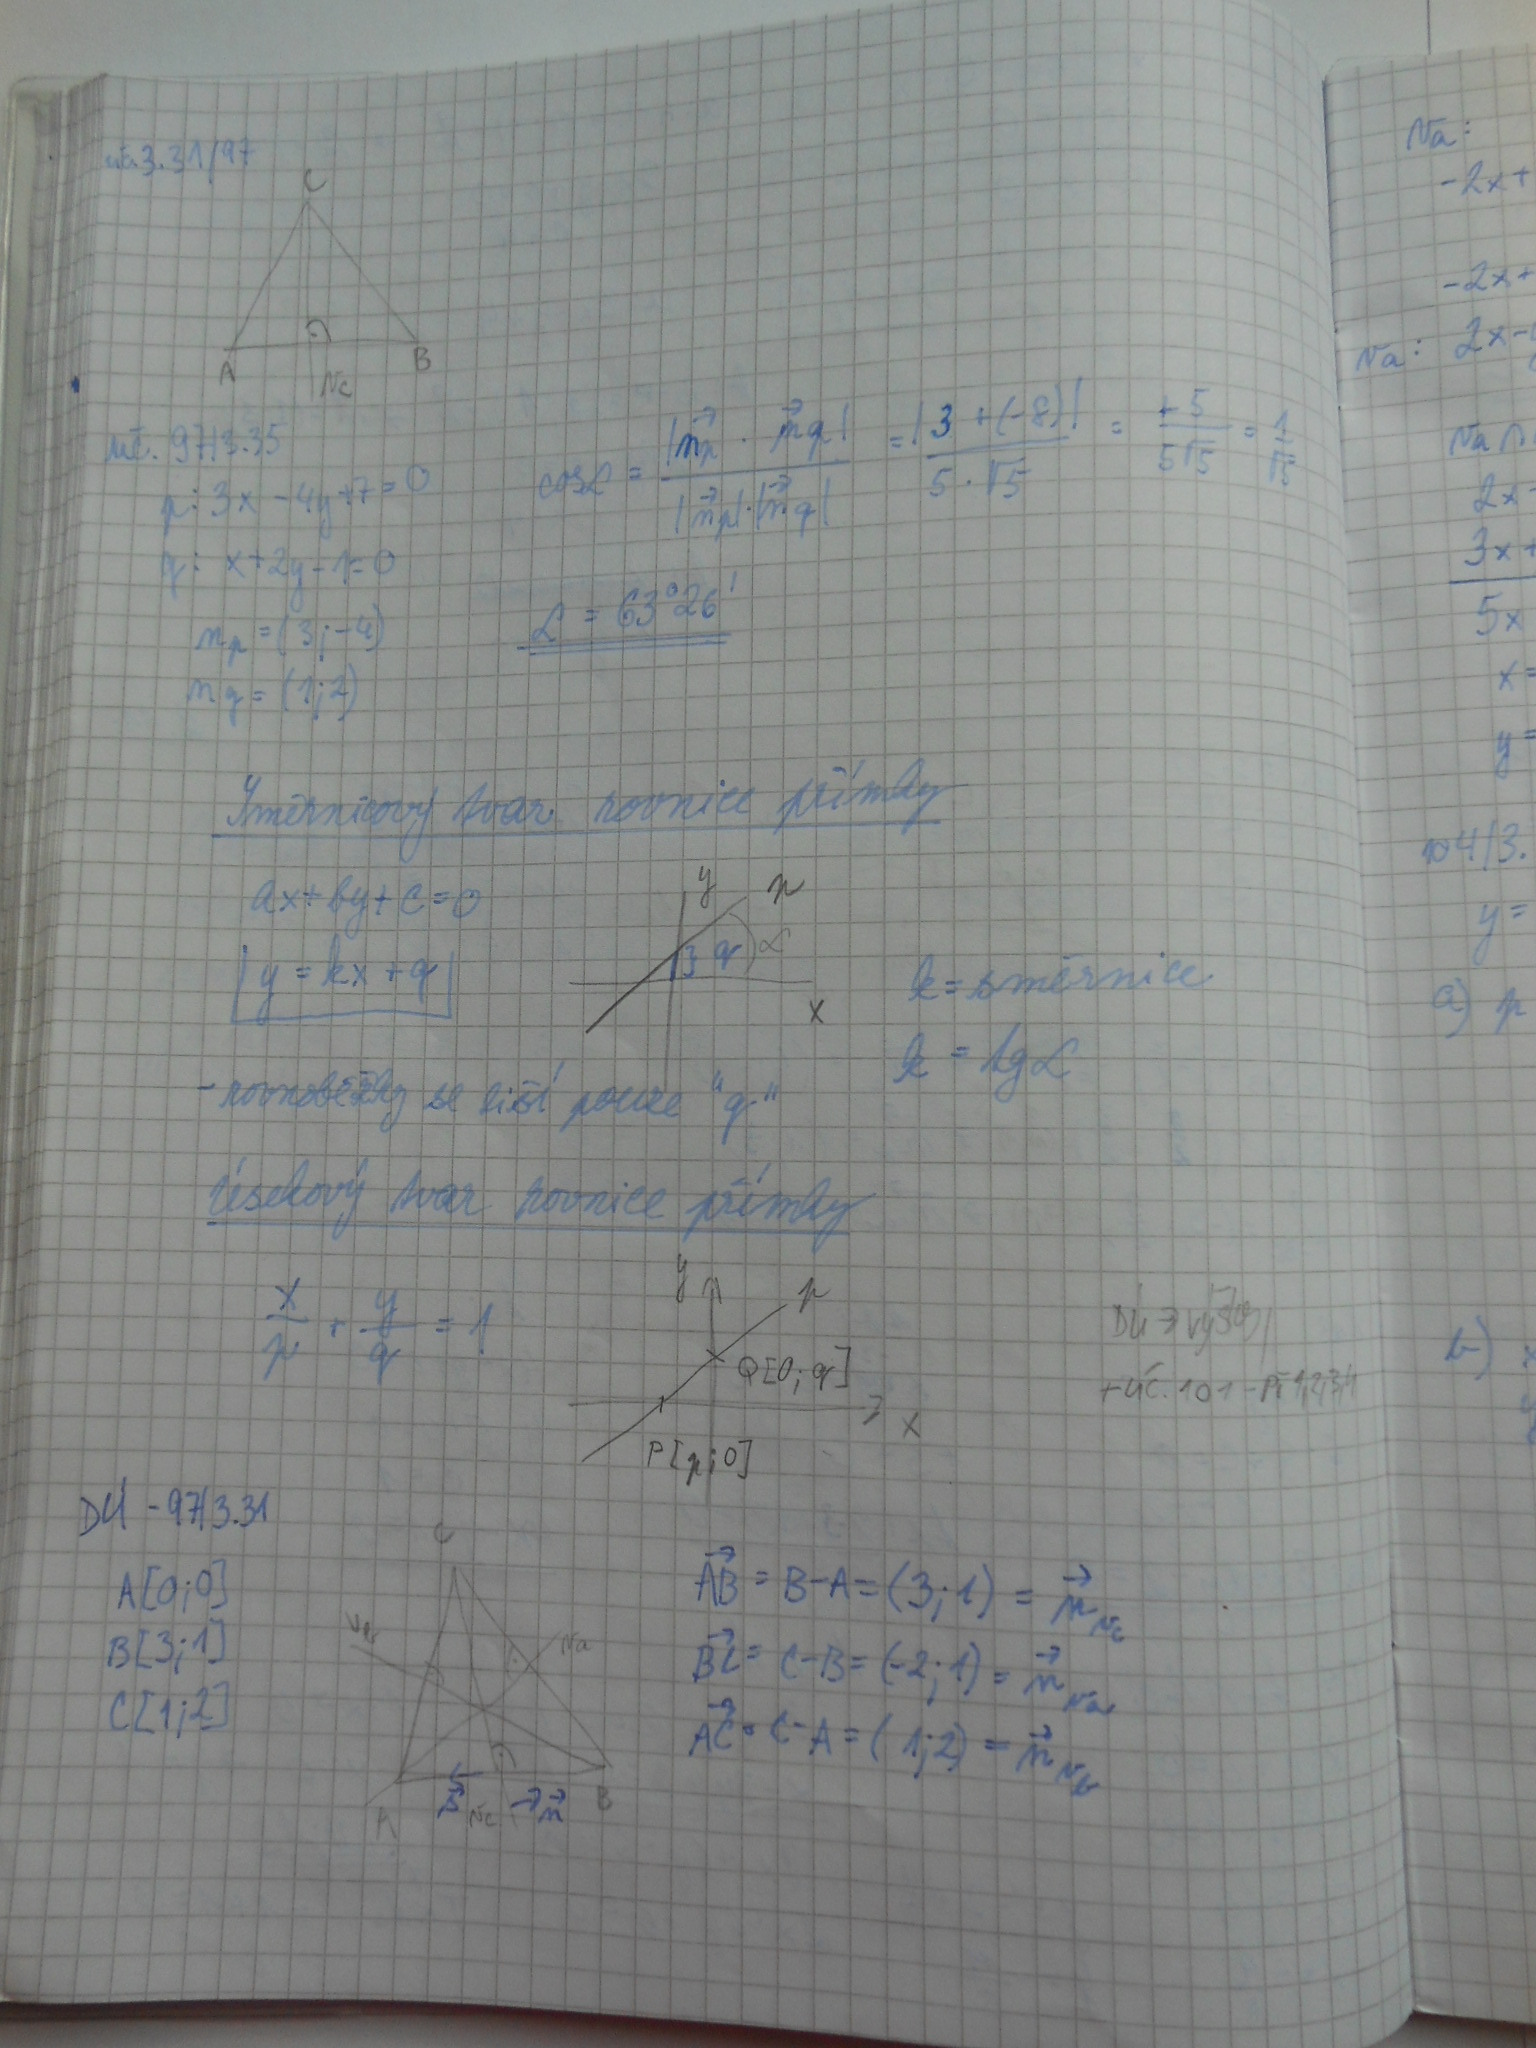 uč. 3.31/97
C
A
B
vc
uč. 97/3.35
p: 3x - 4y + 7 = 0
q: x + 2y - 1 = 0
np = (3; -4)
nq = (1; 2)
cos α = |n⃗p · n⃗q| / |n⃗p| · |n⃗q| = |3 + (-8)| / 5 · √5 = +5 / 5√5 = 1 / √5
α = 63°26'
Směrnicový tvar rovnice přímky
ax + by + c = 0
y = kx + q
y
p
q
α
x
k = směrnice
k = tg α
- rovnoběžky se liší pouze "q"
Úsekový tvar rovnice přímky
x/p + y/q = 1
y
p
Q[0; q]
x
P[p; 0]
DÚ → výšky
+ uč. 101 - Př 1,2,3,4
DÚ - 97/3.31
A[0;0]
B[3;1]
C[1;2]
C
vb
va
A
B
s⃗
vc
n⃗
AB⃗ = B - A = (3; 1) = n⃗vc
BC⃗ = C - B = (-2; 1) = n⃗va
AC⃗ = C - A = (1; 2) = n⃗vb
va:
-2x +
-2x +
va: 2x -
va ∩
2x -
3x +
5x
x =
y =
104/3.
y =
a) p
b) x
y